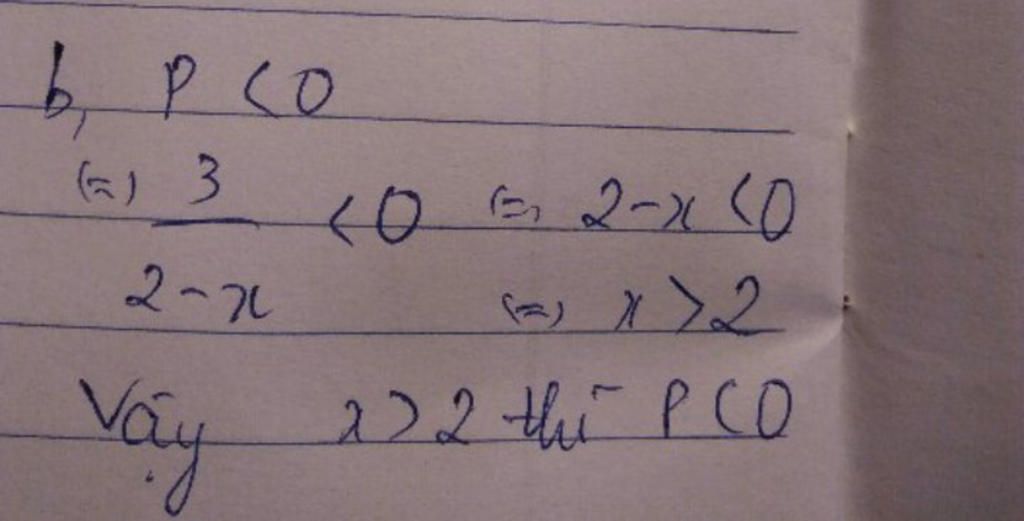 b, P < 0
<=> 3/(2-x) < 0 <=> 2-x < 0
<=> x > 2
Vậy x > 2 thì P < 0